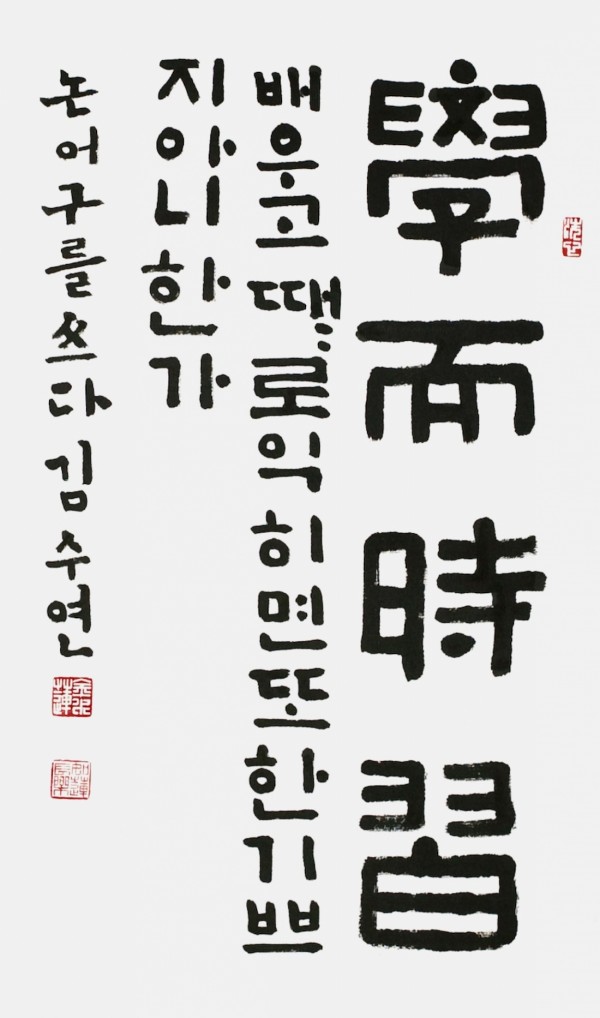 學而時習
배우고 때〻로익히면또한기쁘
지아니한가
논어구를쓰다 김수연